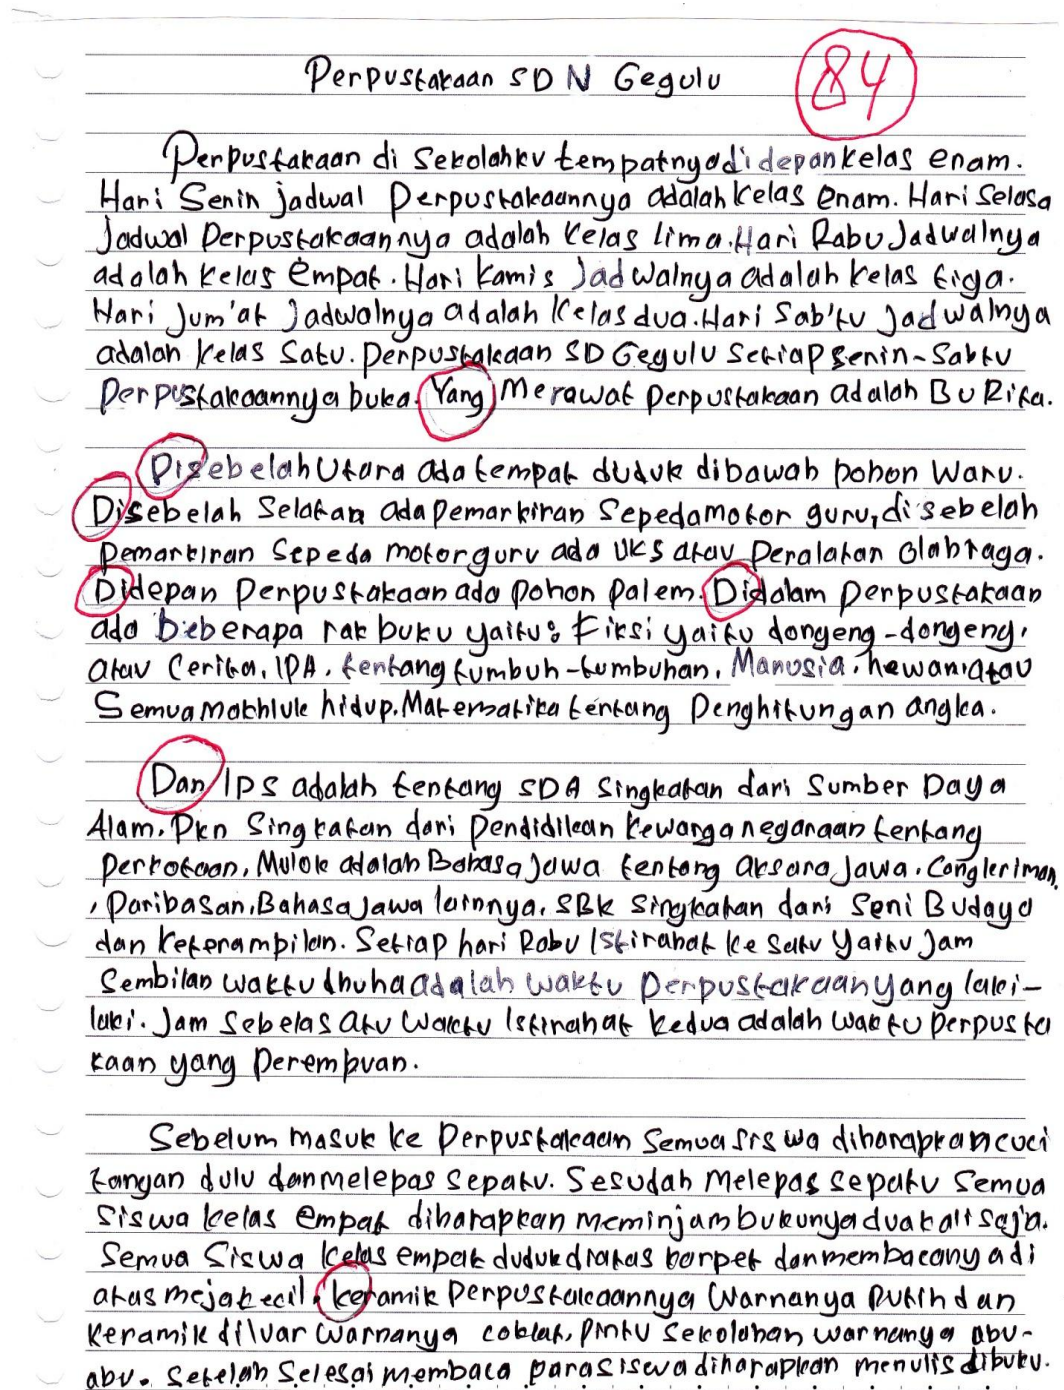 Perpustakaan SDN Gegulu
84
Perpustakaan di Sekolahku tempatnya di depan kelas enam.
Hari Senin jadwal Perpustakaannya adalah kelas enam. Hari Selasa
Jadwal Perpustakaannya adalah kelas lima. Hari Rabu Jadwalnya
adalah kelas empat. Hari kamis Jadwalnya adalah kelas tiga.
Hari Jum'at Jadwalnya adalah kelas dua. Hari Sab'tu Jadwalnya
adalah kelas Satu. Perpustakaan SD Gegulu Setiap Senin-Sabtu
Perpustakaannya buka. Yang Merawat Perpustakaan adalah Bu Rita.
Disebelah Utara ada tempat duduk dibawah pohon Waru.
Disebelah Selatan ada Pemarkiran Sepedamotor guru, di sebelah
Pemarkiran Sepeda motor guru ada UKS atau Peralatan Olahraga.
Didepan Perpustakaan ada Pohon Palem. Didalam Perpustakaan
ada beberapa rak buku yaitu: Fiksi yaitu dongeng-dongeng,
atau Cerita, IPA, tentang tumbuh-tumbuhan, Manusia, hewan, atau
Semua Makhluk hidup. Matematika tentang Penghitungan angka.
Dan IPS adalah tentang SDA Singkatan dari Sumber Daya
Alam. Pkn Singkatan dari Pendidikan kewarganegaraan tentang
Perkotaan, Mulok adalah Bahasa Jawa tentang aksara Jawa. Congkriman,
, Paribasan, Bahasa Jawa lainnya, SBK Singkatan dari Seni Budaya
dan keterampilan. Setiap hari Rabu Istirahat ke Satu Yaitu Jam
Sembilan waktu dhuha adalah waktu Perpustakaan yang laki-
laki. Jam Sebelas atu Waktu Istirahat kedua adalah waktu Perpusta
kaan yang Perempuan.
Sebelum masuk ke Perpustakaan Semua siswa diharapkan cuci
tangan dulu dan melepas sepatu. Sesudah Melepas sepatu Semua
Siswa kelas empat diharapkan meminjam bukunya dua kali saja.
Semua Siswa kelas empat duduk diatas karpet dan membacanya di
atas meja kecil. keramik Perpustakaannya Warnanya Putih dan
keramik diluar Warnanya coklat, Pintu Sekolahan warnanya abu-
abu. Setelah Selesai membaca para siswa diharapkan menulis dibuku.